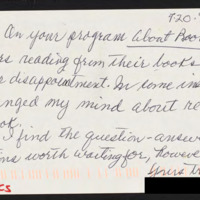 920.
On your program About Boo
rs reading from their books
r disappointment. In some ins
nged my mind about re
ook.
I find the question-answe
ons worth waiting for, howeve
Yours tr
CS